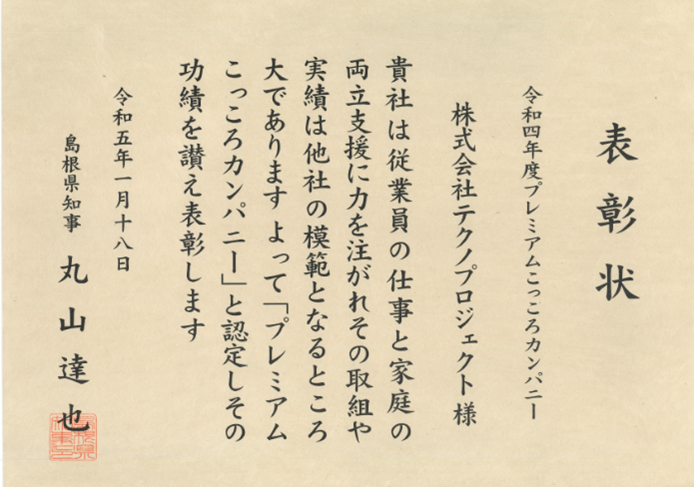 表彰状
令和四年度プレミアムこっころカンパニー
株式会社テクノプロジェクト様
貴社は従業員の仕事と家庭の
両立支援に力を注がれその取組や
実績は他社の模範となるところ
大であります よって「プレミアム
こっころカンパニー」と認定しその
功績を讃え表彰します
令和五年一月十八日
島根県知事 丸山達也